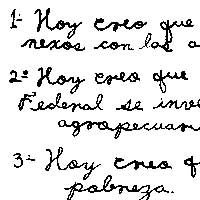 1- Hoy creo que
nexos con las a
2- Hoy creo que
Federal se inve
agropecuari
3- Hoy creo q
pobreza.